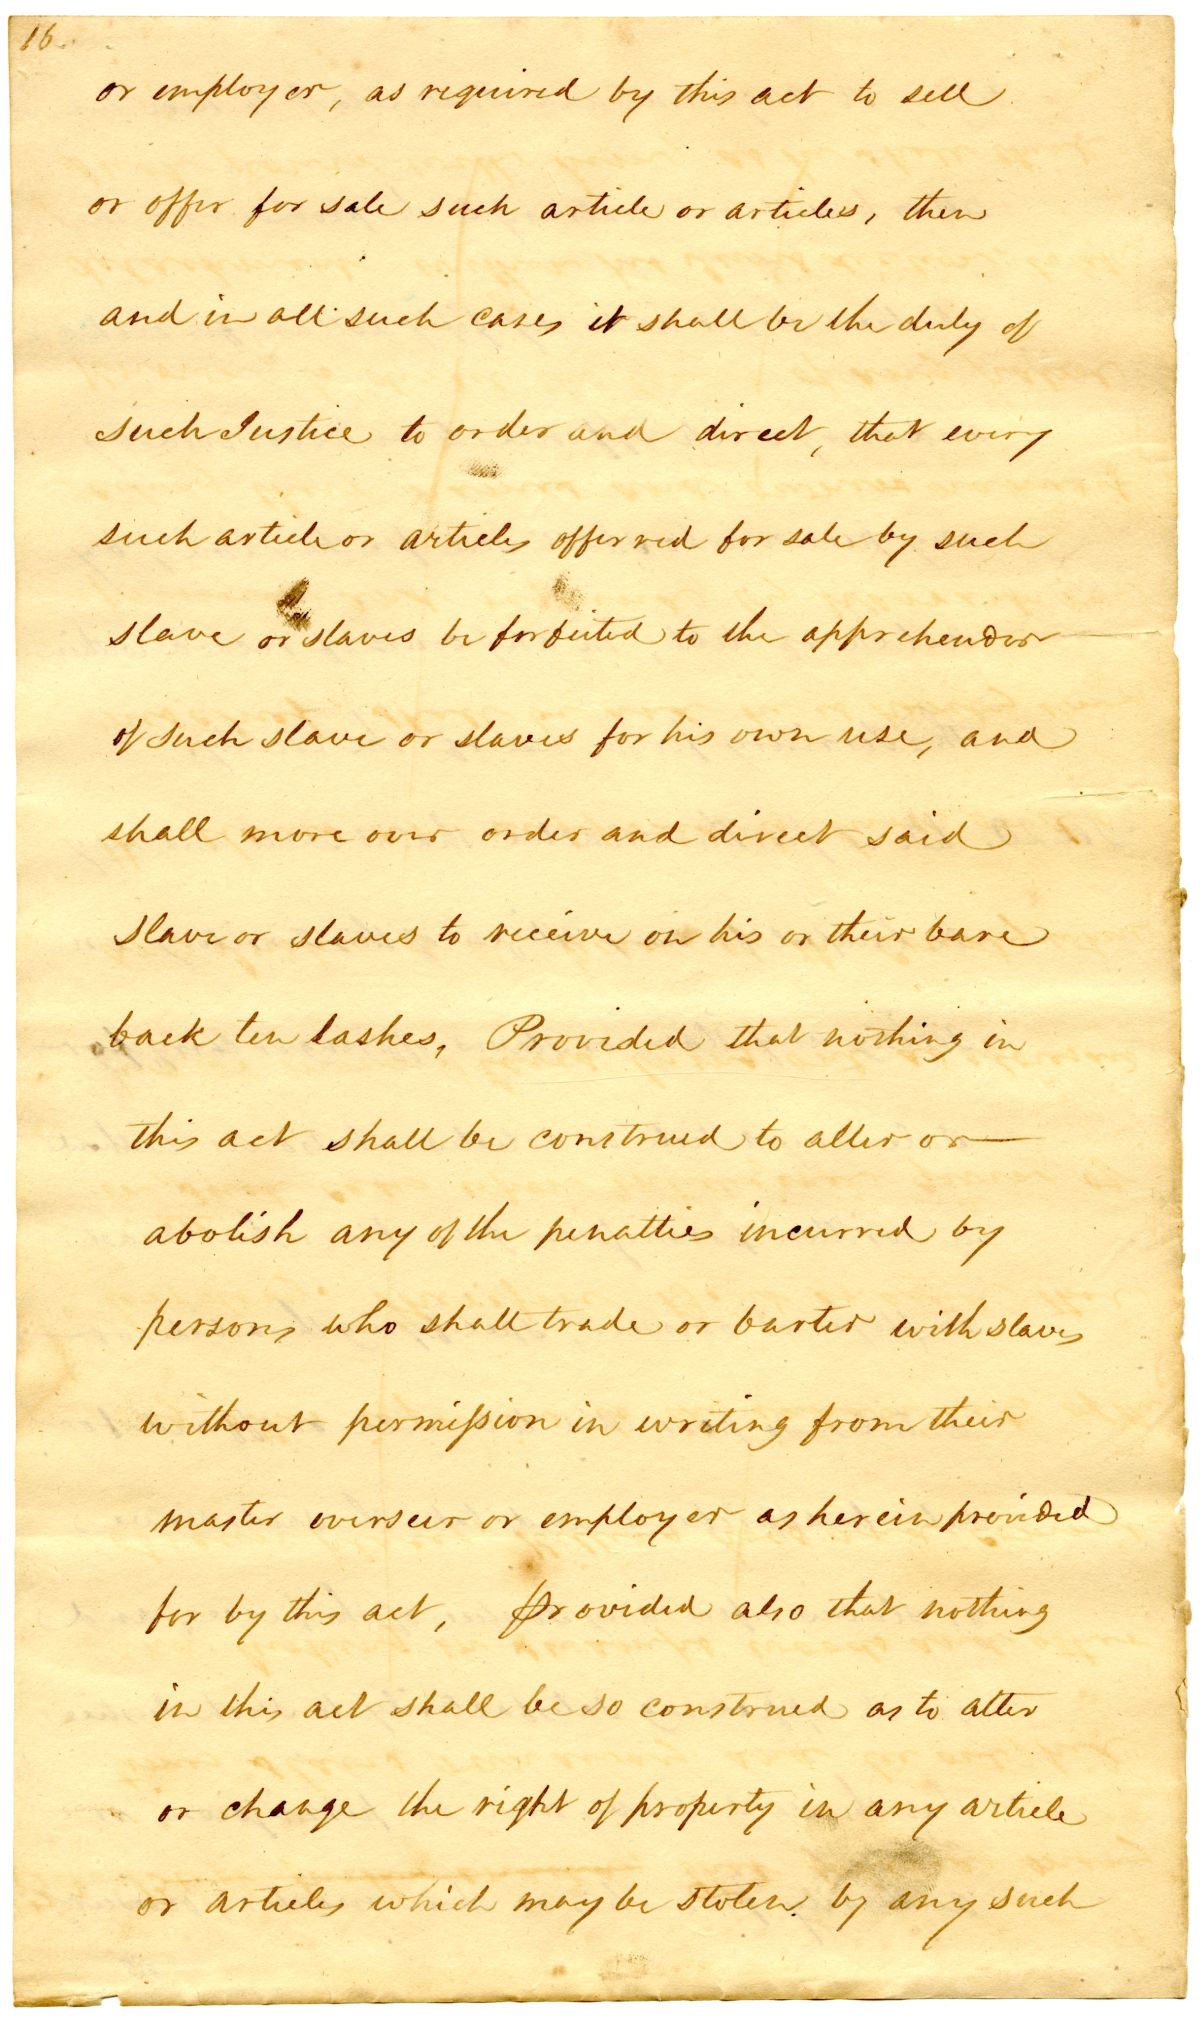 16.
or employer, as required by this act to sell
or offer for sale such article or articles, then
and in all such cases it shall be the duty of
such Justice to order and direct, that every
such article or articles offerred for sale by such
slave or slaves be forfeited to the apprehender
of such slave or slaves for his own use, and
shall more over order and direct said
slave or slaves to receive on his or their bare
back ten lashes, Provided that nothing in
this act shall be construed to alter or
abolish any of the penalties incurred by
persons who shall trade or barter with slaves
without permission in writing from their
master overseer or employer as herein provided
for by this act, Provided also that nothing
in this act shall be so construed as to alter
or change the right of property in any article
or articles which may be stolen by any such